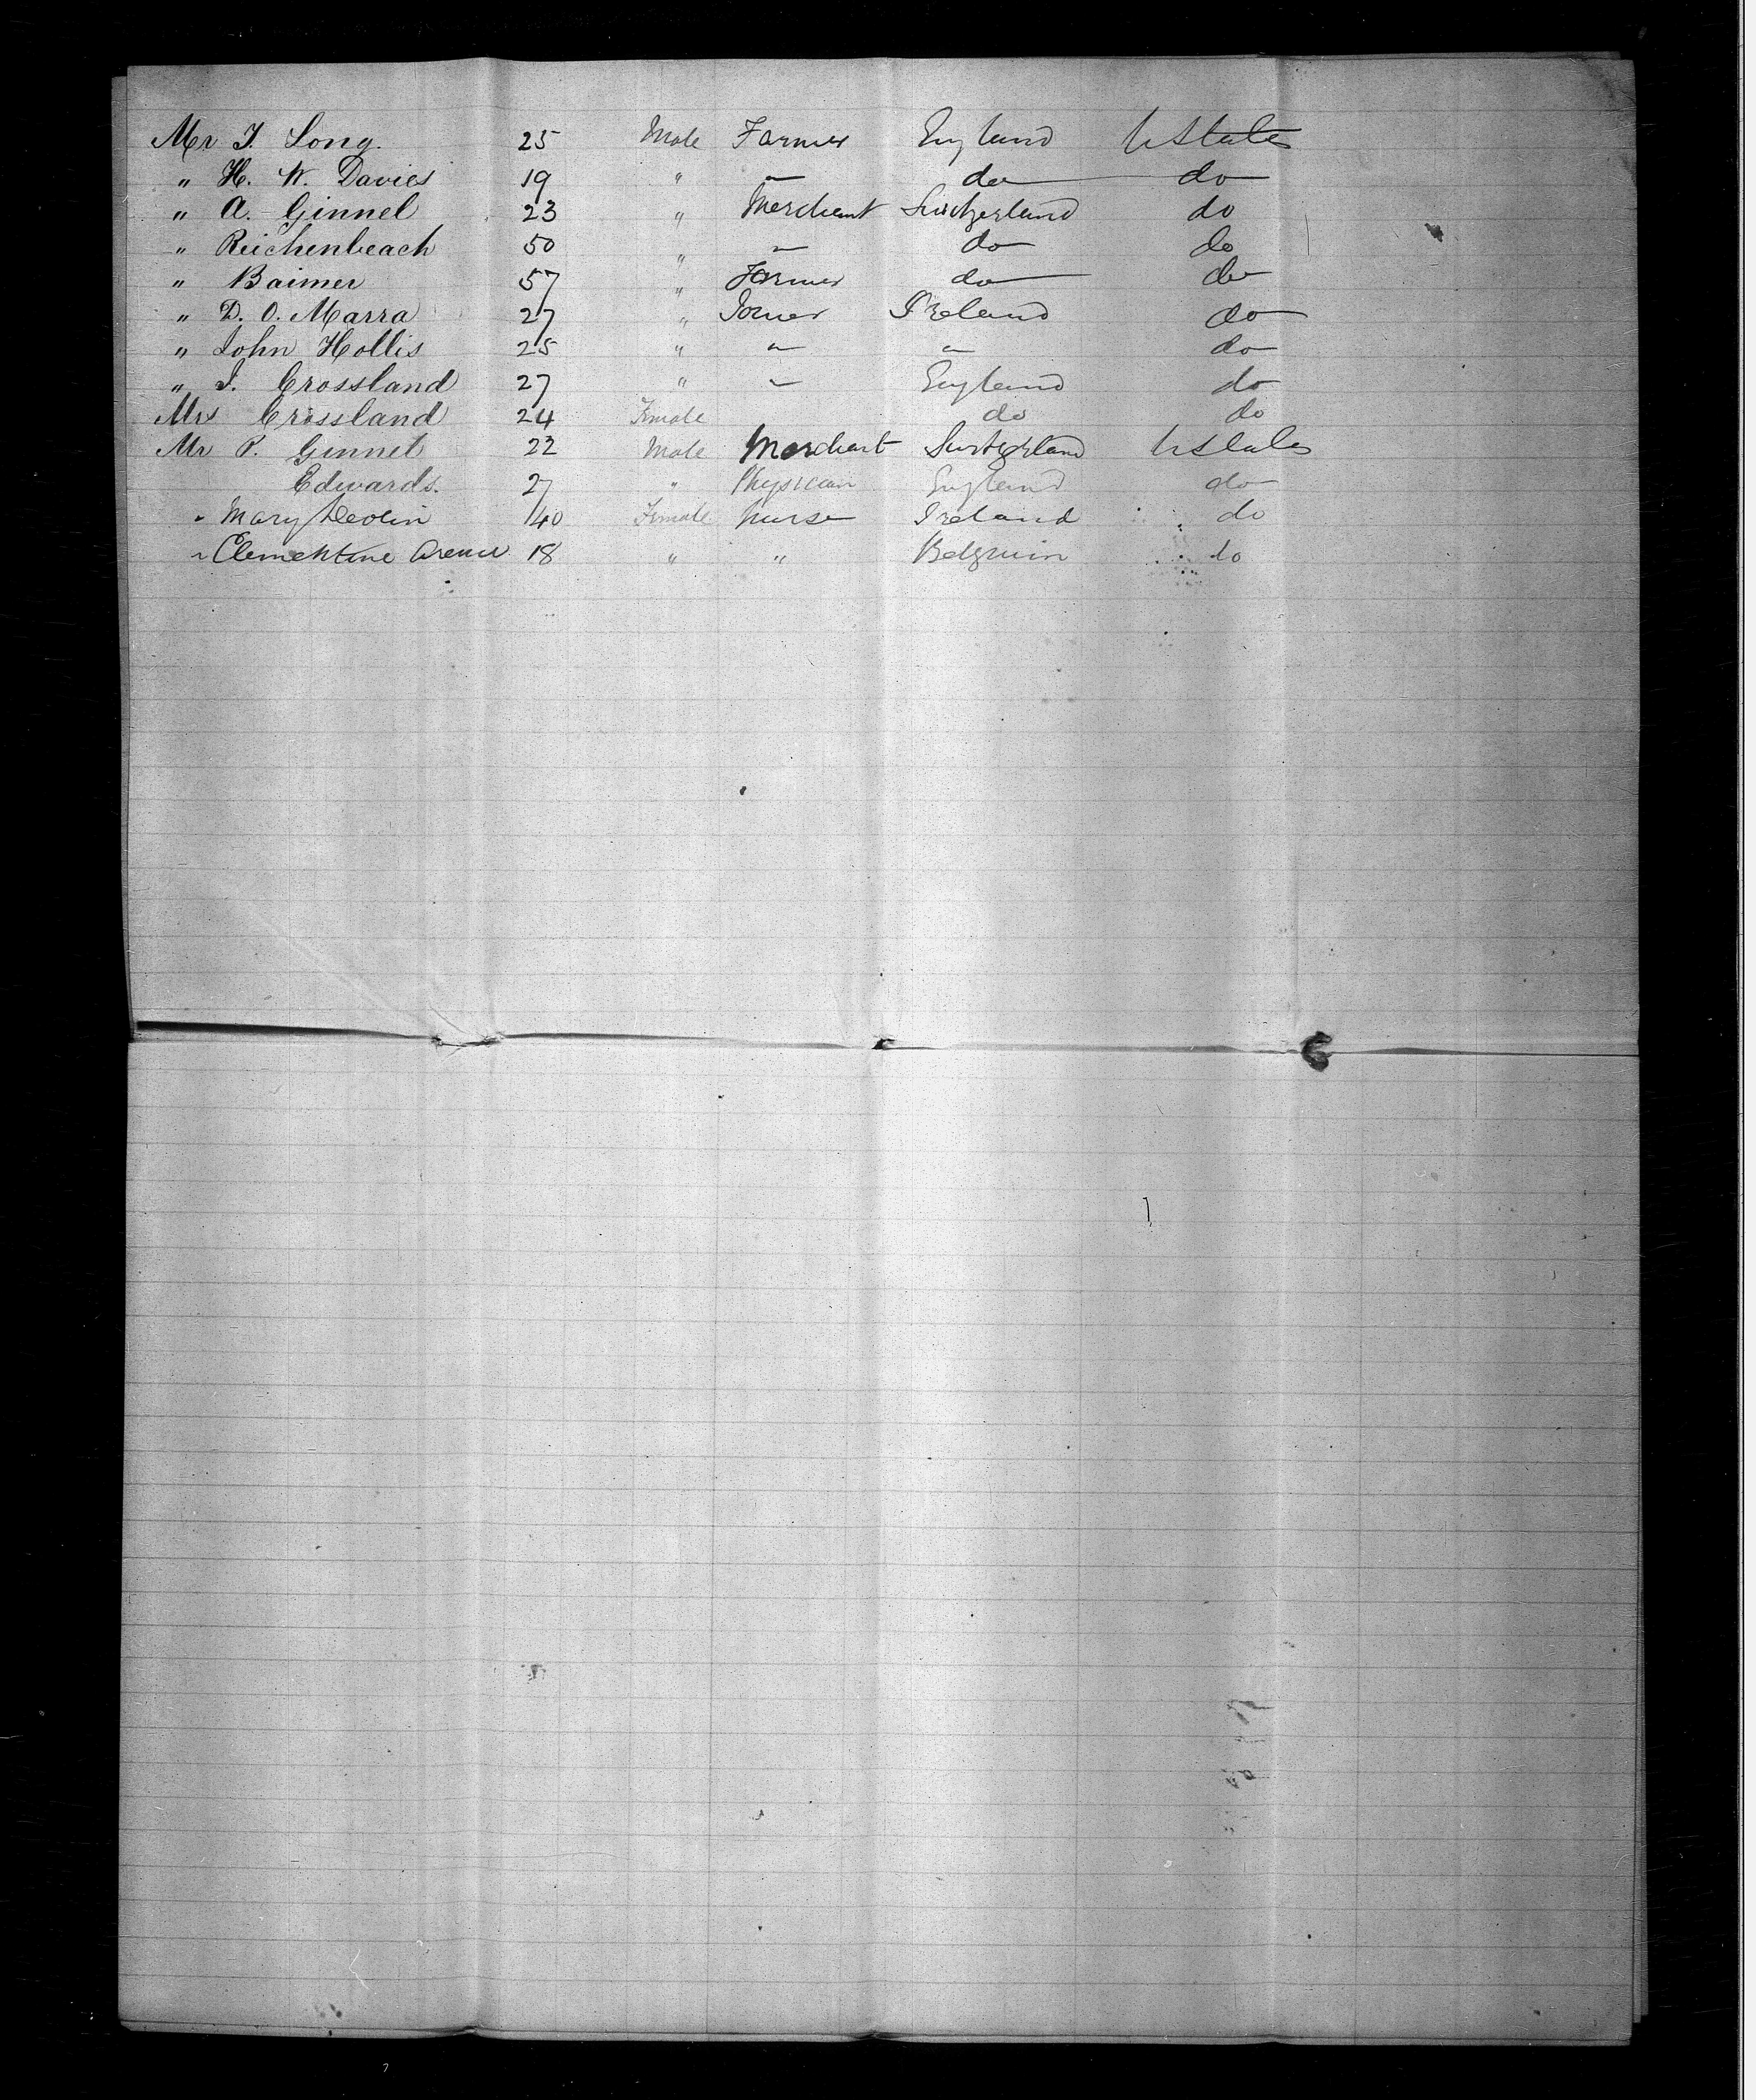 Mr J. Long. 25 Male Farmer England U States
" H. W. Davies 19 " " do do
" A. Ginnel 23 " Merchant Switzerland do
" Reichenbeach 50 " " do do
" Baimer 57 " Farmer do do
" D. O. Marra 27 " Ireland do
" John Hollis 25 " " " do
" J. Crossland 27 " " England do
Mrs Crossland 24 Female do do
Mr P. Ginnel 22 Male Merchant Switzerland U States
Edwards. 27 " Physician England do
" Mary Devlin 40 Female Nurse Ireland do
" Clementine 18 " " Belgium do